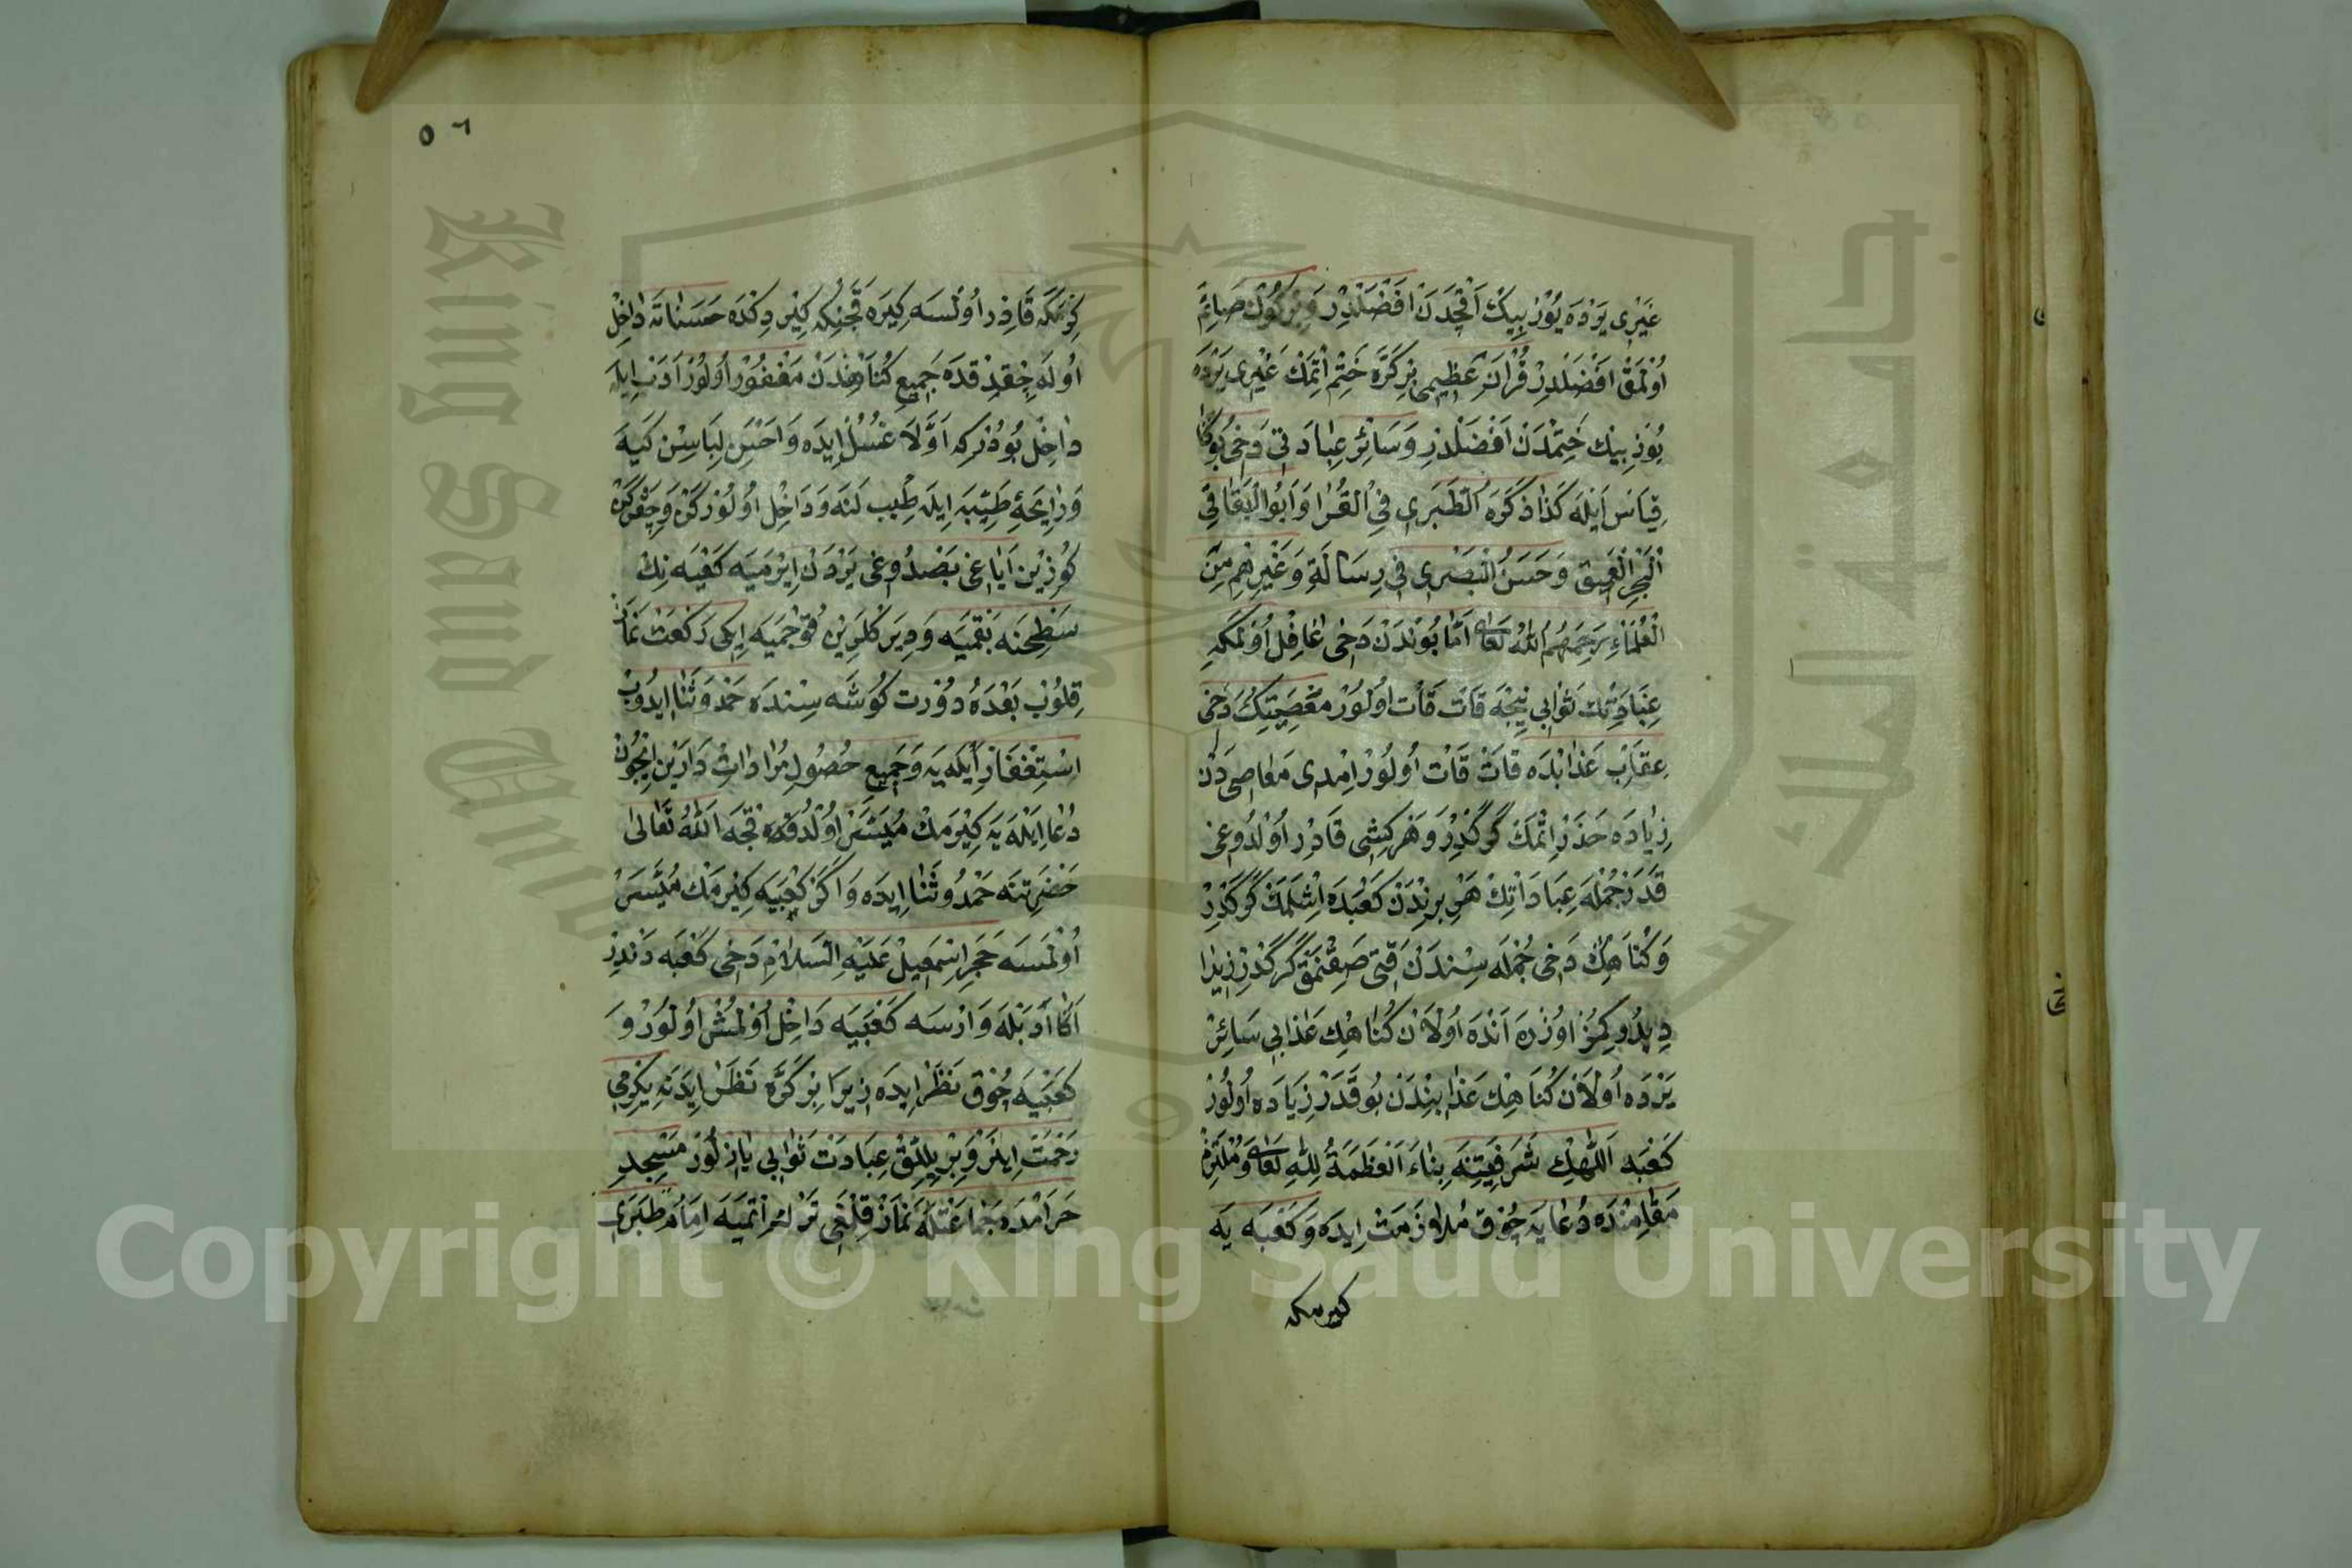 غَيْرِى يَرْدَه يُوْزْ بِيكْ اَقْچَەدَنْ اَفْضَلْدِرْ وَبِرْ كُونْ صَائِمْ
اُوْلْمَقْ اَفْضَلْدِرْ قُرْآنِ عَظِيمِى بِرْ كَرَّه خَتْمْ اِتْمَكْ غَيْرِى يَرْدَه
يُوزْ بِيكْ خَتِمْدَنْ اَفْضَلْدِرْ وَسَائِرْ عِبَادَتِى دَخِى بُوكَا
قِيَاسْ اَيْلَه كَذَا ذَكَرَهُ الطَّبَرِى فِى الْقُرَا وَاَبُوالْبَقَا فِى
الْبَحْرِ الْعَمِيقْ وَحَسَنُ الْبَصْرِى فِى رِسَالَةٍ وَغَيْرِهِمْ مِنَ
الْعُلَمَاءِ رَحِمَهُمُ اللّٰهُ تَعَالٰى اَمَّا بُونْدَنْ دَخِى غَافِلْ اُوْلْمَكَه
عِبَادَتِكْ ثَوَابِى نِيجَه قَاتْ قَاتْ اُولُورْ مَعْصِيَتِكْ دَخِى
عِقَابْ عَذَابْدَه قَاتْ قَاتْ اُولُورْ اِمْدِى مَعَاصِى دَنْ
زِيَادَه حَذَرْ اِتْمَكْ كَرَكْدِرْ وَهَرْ كِشِى قَادِرْ اُوْلْدُوغِى
قَدَرْ جُمْلَه عِبَادَاتِكْ هَرْ بِرِنْدَنْ كَعْبَەدَه اِشْلَمَكْ كَرَكْدِرْ
وَكُنَاهِكْ دَخِى جُمْلَه سِنْدَنْ قَتِى صَقِنْمَقْ كَرَكْدِرْ زِيرَا
دِيدُوكِمُزْ اوُزْرَه اَنْدَه اُولَانْ كُنَاهِكْ عَذَابِى سَائِرْ
يَرْدَه اُولَانْ كُنَاهِكْ عَذَابِنْدَنْ بُو قَدَرْ زِيَادَه اُولُورْ
كَعْبَه اَللّٰهِكْ شَرَفِيَّتِنَه بِنَاءً اَلْعَظَمَةُ لِلّٰهِ تَعَالٰى وَمُلْتَزَمْ
مَقَامِنْدَه دُعَايَه چُوقْ مُلَازَمَتْ اِيدَه وَكَعْبَه يَه
كيرمكه
٥٦
كِيرْمَكَه قَادِرْ اُولْسَه كِيرَه قَچَنْكِه كِيرْدِكْدَه حَسَنَاتَه دَاخِلْ
اُولَه چِقْدِقْدَه جَمِيعِ كُنَاهِنْدَنْ مَغْفُورْ اُولُورْ اَدَبْ اِيلَه
دَاخِلْ بُودُرْكِه اَوَّلَا غُسْلْ اِيدَه وَاَحْسَنِ لِبَاسِنْ كَيَه
وَرَايِحَهِٔ طَيِّبَه اِيلَه طِيبْ لَنَه وَدَاخِلْ اُولُورْكَنْ وَچِقَرْكَنْ
كُوزِينْ اَيَاغِى بَصْدُوغِى يَرْدَنْ اَيِرْمَيَه كَعْبَه نِكْ
سَطْحِنَه بَقْمَيَه وَدِيرَكْلَرِينْ قُوجْمَيَه اِيكِى رَكْعَتْ نَمَازْ
قِلُوبْ بَعْدَهُ دُورْتْ كُوشَه سِنْدَه حَمْدُ وَثَنَا ايدُوبْ
اِسْتِغْفَارْ اَيْلَه يَه وَجَمِيعِ حُصُولِ مُرَادَاتِ دَارَيْنْ اِيچُونْ
دُعَا اَيْلَه يَه كِيرْمَكْ مُيَسَّرْ اُولْدُقْدَه قَچَه اَللّٰهُ تَعَالٰى
حَضْرَتِنَه حَمْدُ وثَنَا اِيدَه وَاَكَرْ كَعْبَيَه كِيرْمَكْ مُيَسَّرْ
اُولْمَسَه حَجَرِ اِسْمٰعِيلْ عَلَيْهِ السَّلَامْ دَخِى كَعْبَه دَنْدِرْ
اَكَا اَدَبْلَه وَارْسَه كَعْبَيَه دَاخِلْ اُوْلْمُشْ اُولُورْ وَ
كَعْبَيَه چُوقْ نَظَرْ اِيدَه زِيرَا بِرْ كَرَّه نَظَرْ اِيدَنَه يِكِرْمِى
رَحْمَتْ اِينَرْ وَبِرْ يِلْلِقْ عِبَادَتْ ثَوَابِى يَازِلُورْ مَسْجِدِ
حَرَامْدَه جَمَاعَتْلَه نَمَازْ قِلْمَغِى تَرْكْ اِتْمَيَه اِمَامْ طَبَرِى